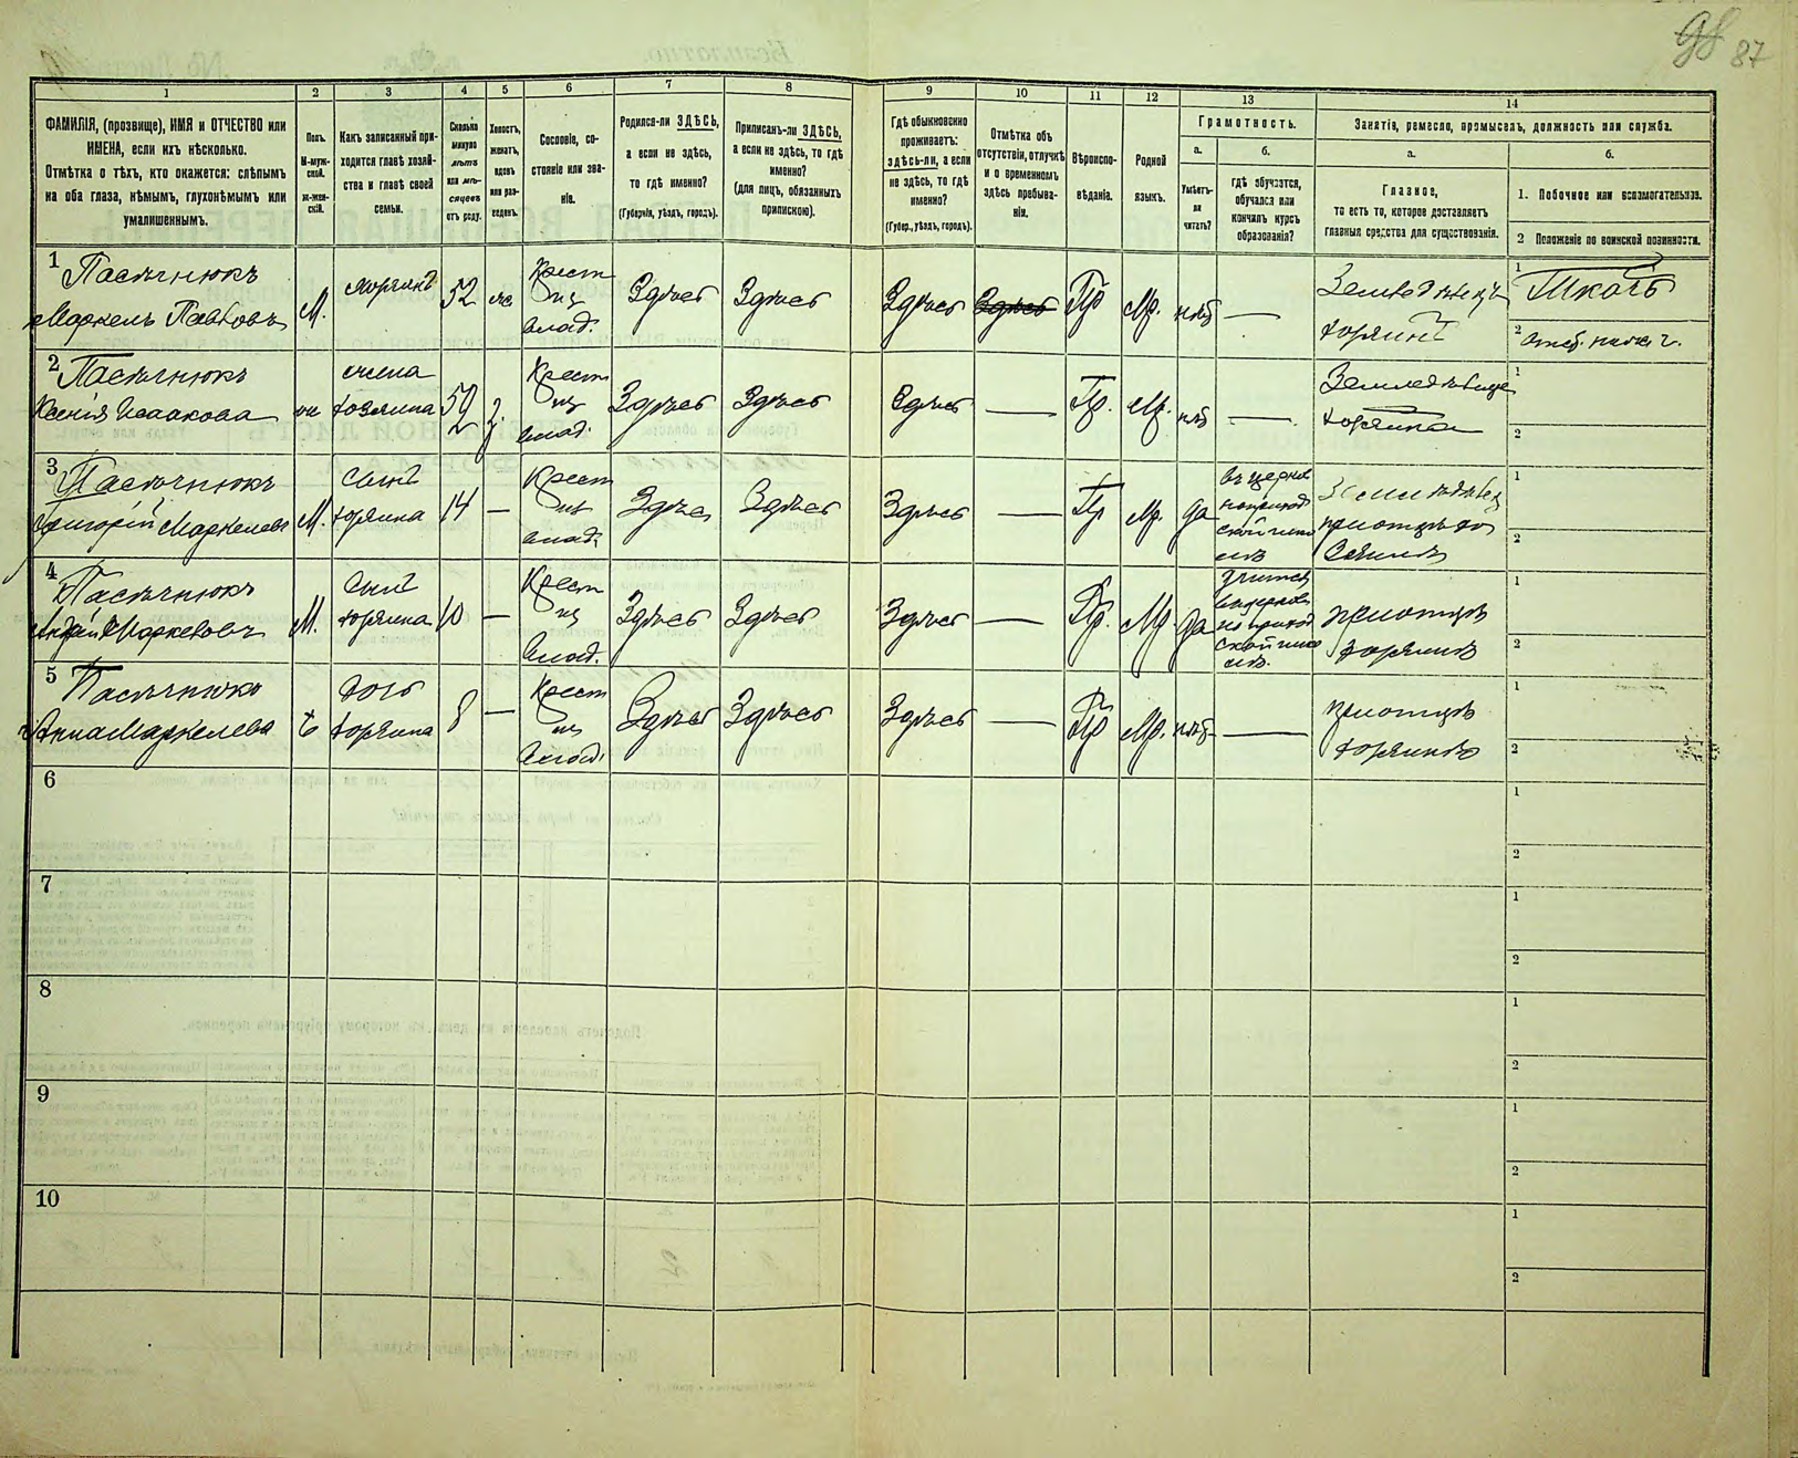 98 87
1 2 3 4 5 6 7 8 9 10 11 12 13 14
ФАМИЛІЯ, (прозвище), ИМЯ и ОТЧЕСТВО или
ИМЕНА, если ихъ нѣсколько.
Отмѣтка о тѣхъ, кто окажется: слѣпымъ
на оба глаза, нѣмымъ, глухонѣмымъ или
умалишеннымъ.
Полъ.
М-муж-
ской.
ж-жен-
скій.
Какъ записанный при-
ходится главѣ хозяй-
ства и главѣ своей
семьи.
Сколько
минуло
лѣтъ
или мѣ-
сяцевъ
отъ роду.
Холостъ,
женатъ,
вдовъ
или раз-
веденъ.
Сословіе, со-
стояніе или зва-
ніе.
Родился-ли ЗДѢСЬ,
а если не здѣсь,
то гдѣ именно?
(Губернія, уѣздъ, городъ).
Приписанъ-ли ЗДѢСЬ,
а если не здѣсь, то гдѣ
именно?
(для лицъ, обязанныхъ
припискою).
Гдѣ обыкновенно
проживаетъ:
здѣсь-ли, а если
не здѣсь, то гдѣ
именно?
(Губер., уѣздъ, городъ).
Отмѣтка объ
отсутствіи, отлучкѣ
и о временномъ
здѣсь пребыва-
ніи.
Вѣроиспо-
вѣданіе.
Родной
языкъ.
Грамотность.
а.
Умѣетъ-
ли
читать?
б.
гдѣ обучается,
обучался или
кончилъ курсъ
образованія?
Занятіе, ремесло, промыселъ, должность или служба.
а.
Главное,
то есть то, которое доставляетъ
главныя средства для существованія.
б.
1. Побочное или вспомогательное.
2 Положеніе по воинской повинности.
1 Пасѣчнюкъ
Маркелъ Павловъ
М.
хозяинъ
52
же
Крест
изъ
влад.
Здѣсь Здѣсь Здѣсь Здѣсь Пр Мр. нѣтъ —
Земледѣлецъ
хозяинъ
1 Ткачъ
2
2 Пасѣчнюкъ
Ксенія Исаакова
ж
жена
хозяина
52
з.
Крест
изъ
влад.
Здѣсь Здѣсь Здѣсь — Пр. Мр. нѣтъ —
хозяйка
1
2
3 Пасѣчнюкъ
Григорій Маркеловъ
М.
сынъ
хозяина
14 —
Крест
изъ
влад.
Здѣсь Здѣсь Здѣсь — Пр Мр. да
въ церков
но приход
ской шко
лѣ
при отцѣ хо
зяинѣ
1
2
4 Пасѣчнюкъ
Андрей Маркеловъ
М.
сынъ
хозяина
10 —
Крест
изъ
влад.
Здѣсь Здѣсь Здѣсь — Пр. Мр да
учится
въ церков
но приход
ской шко
лѣ.
при отцѣ
хозяинѣ
1
2
5 Пасѣчнюкъ
Анна Маркелева
ж
дочь
хозяина
8 —
Крест
изъ
влад.
Здѣсь Здѣсь Здѣсь — Пр Мр. нѣтъ —
при отцѣ
хозяинѣ
1
2
6
1
2
7
1
2
8
1
2
9
1
2
10
1
2